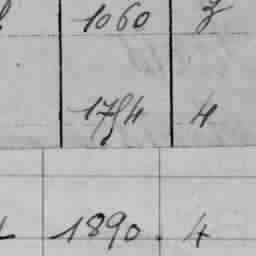 1060
1754 4
1890. 4